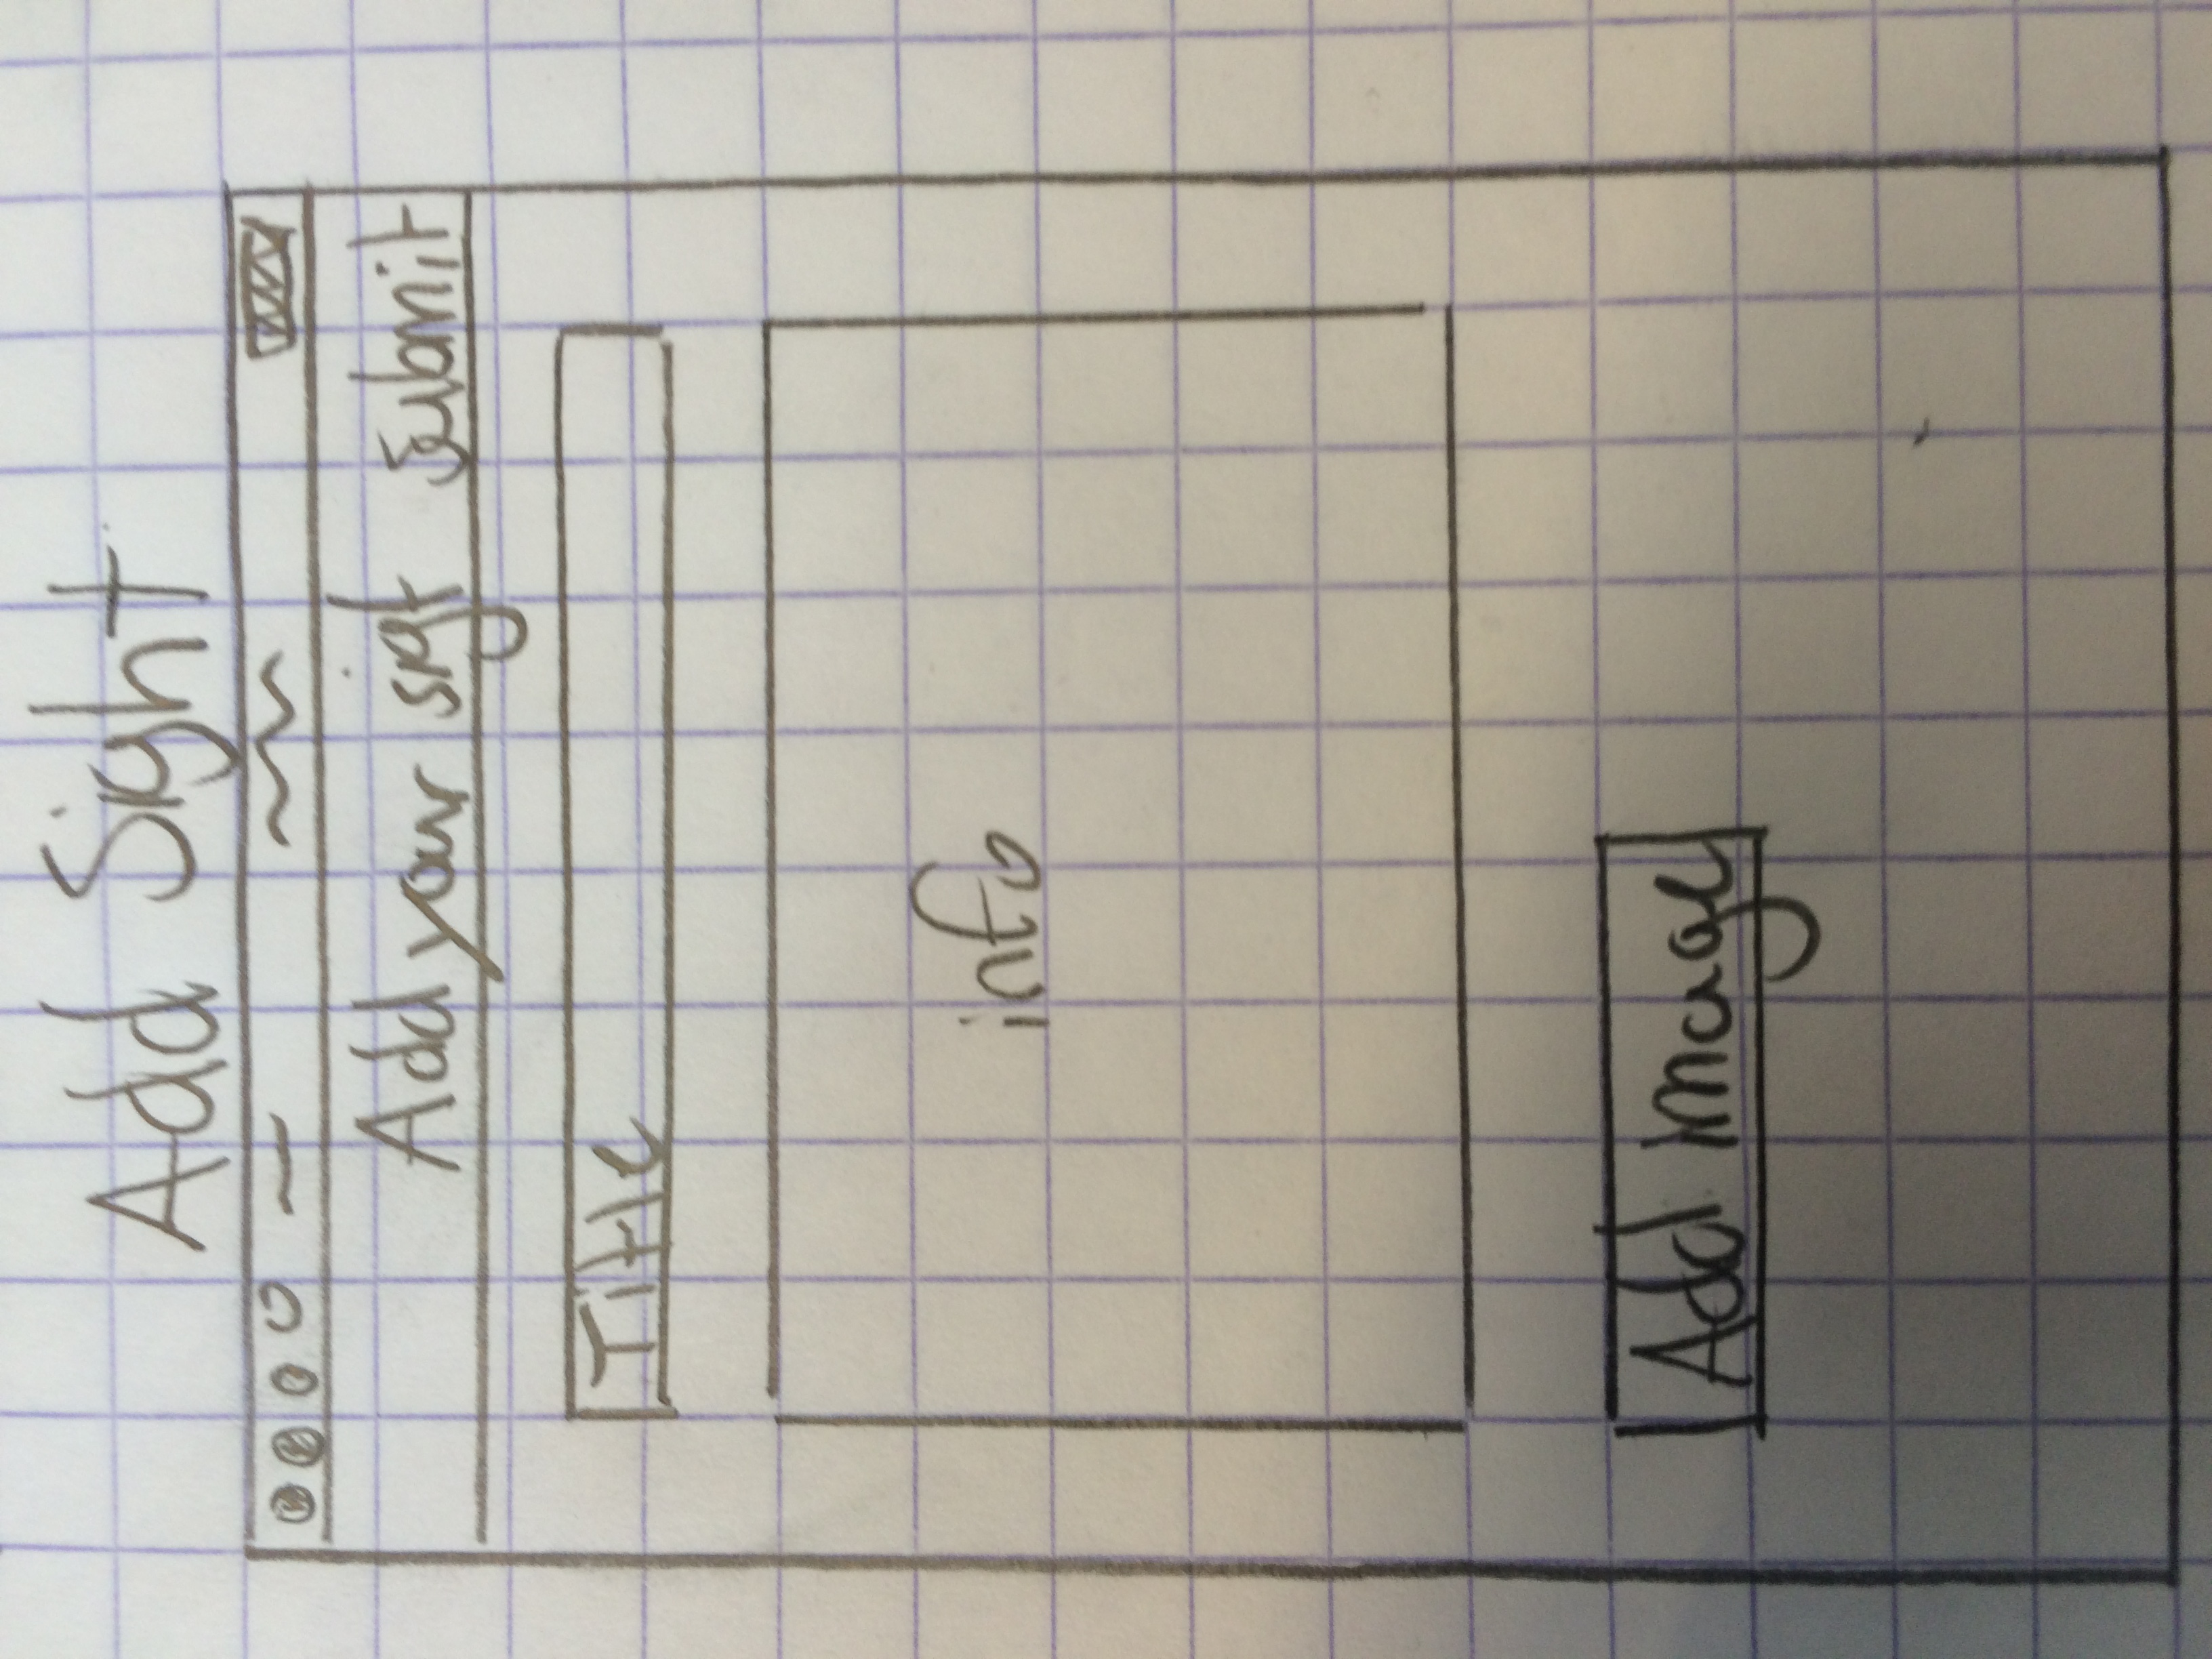 Add Sight
Add your sigt Submit
Title
info
Add image